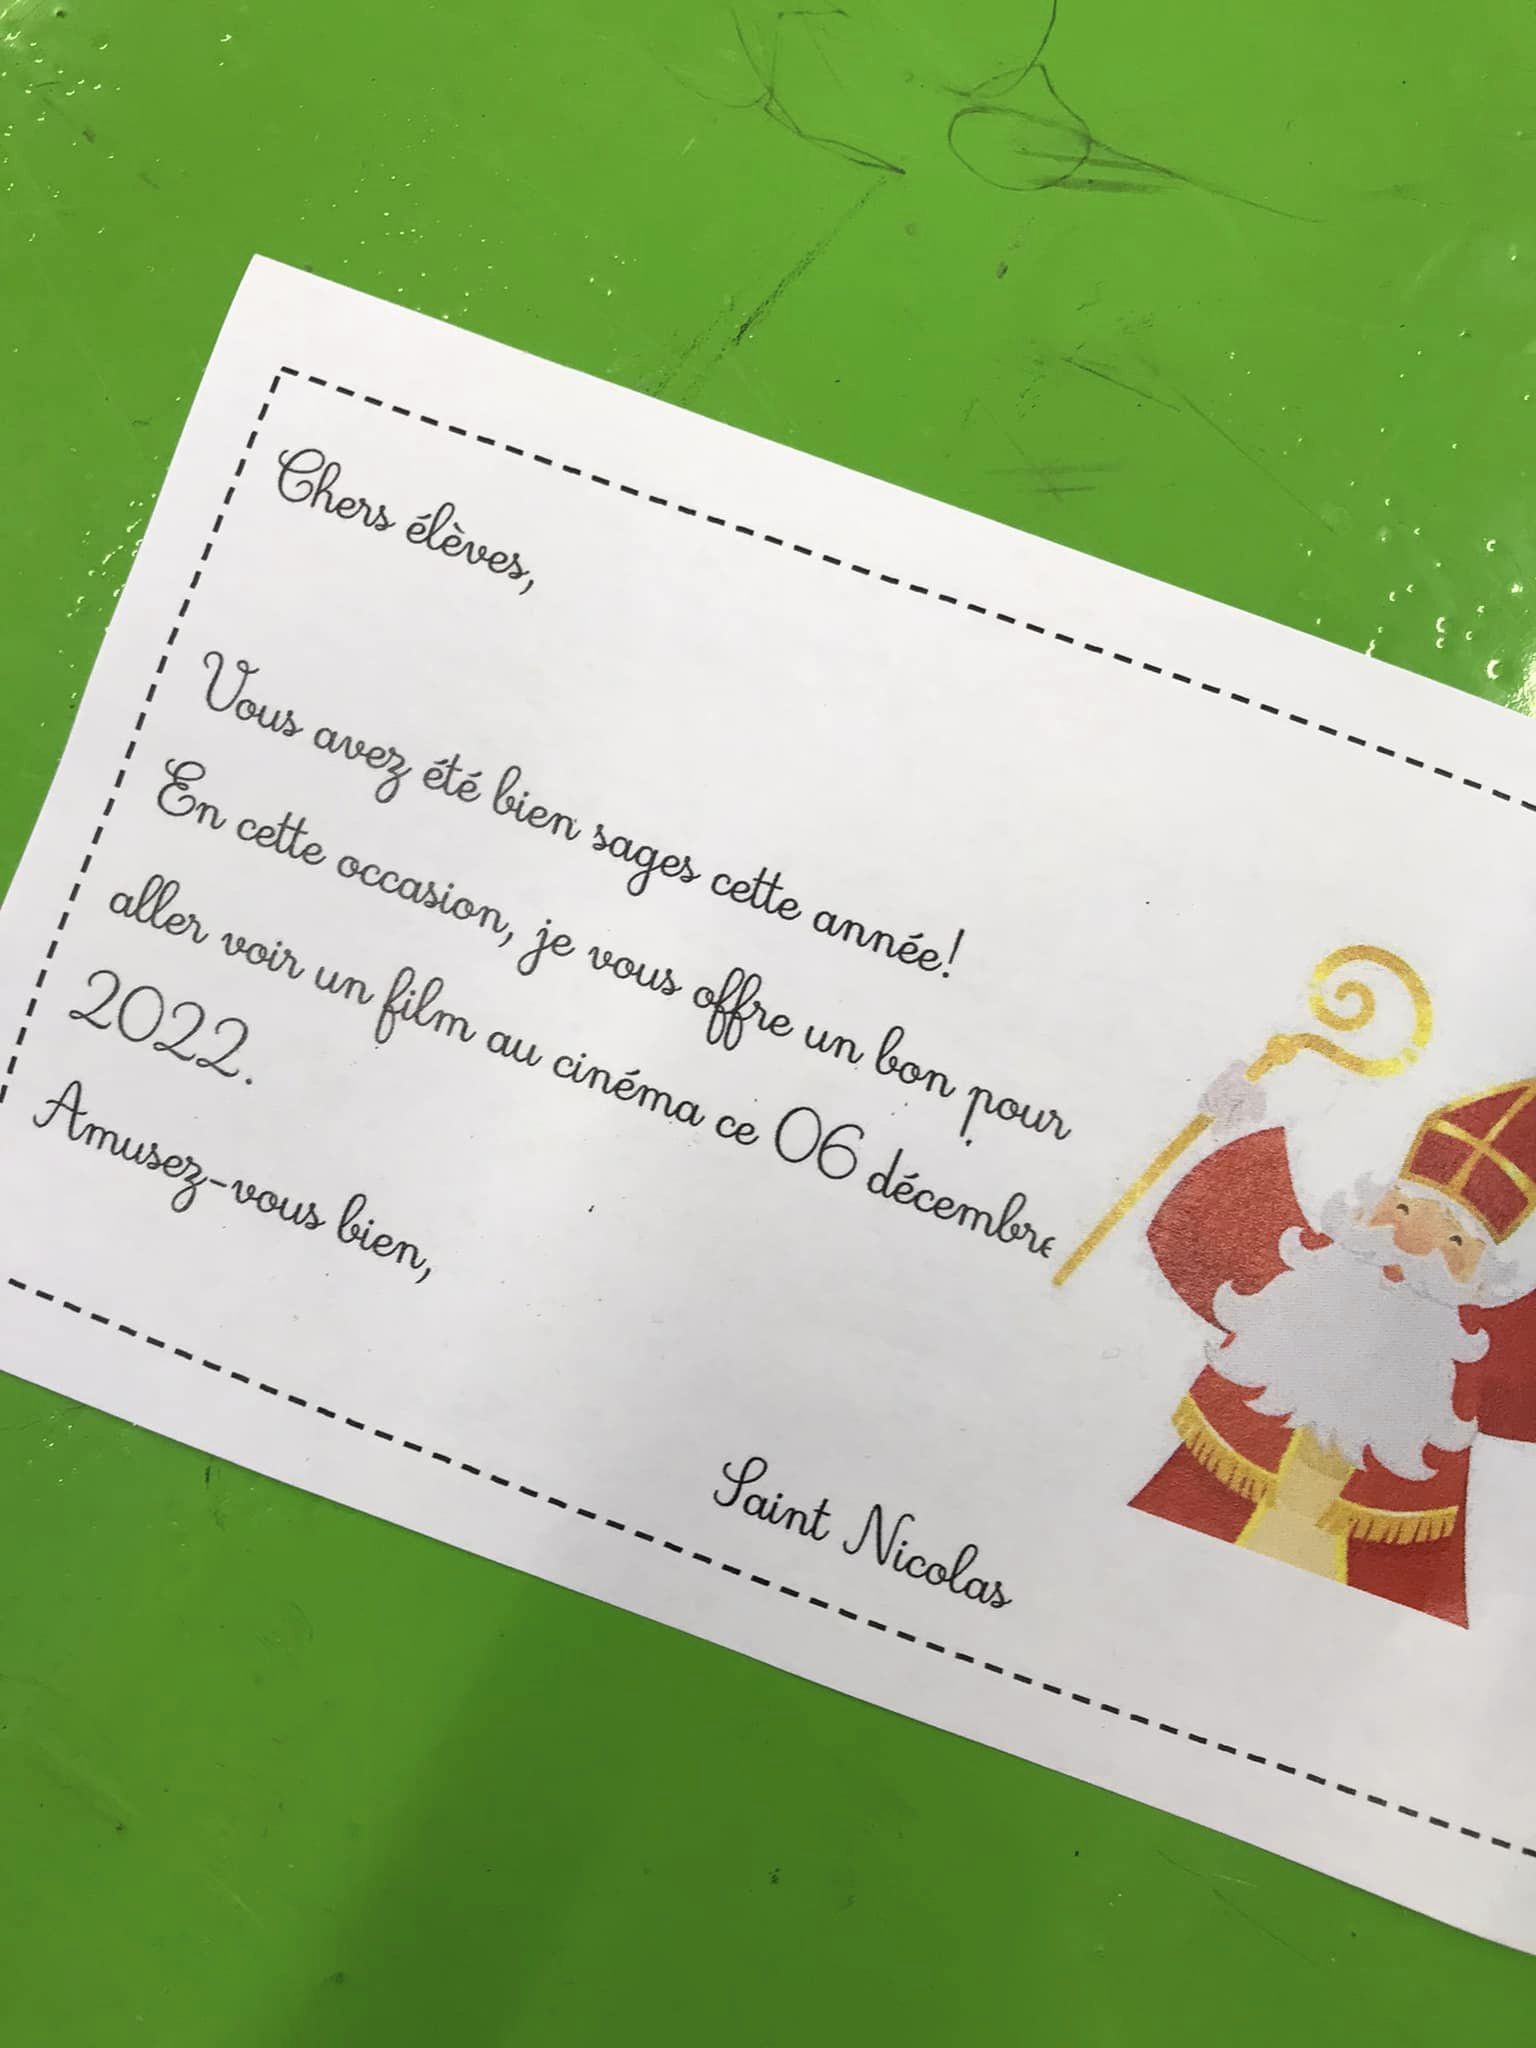 Chers élèves,
Vous avez été bien sages cette année!
En cette occasion, je vous offre un bon pour
aller voir un film au cinéma ce 06 décembre
2022.
Amusez-vous bien,
Saint Nicolas